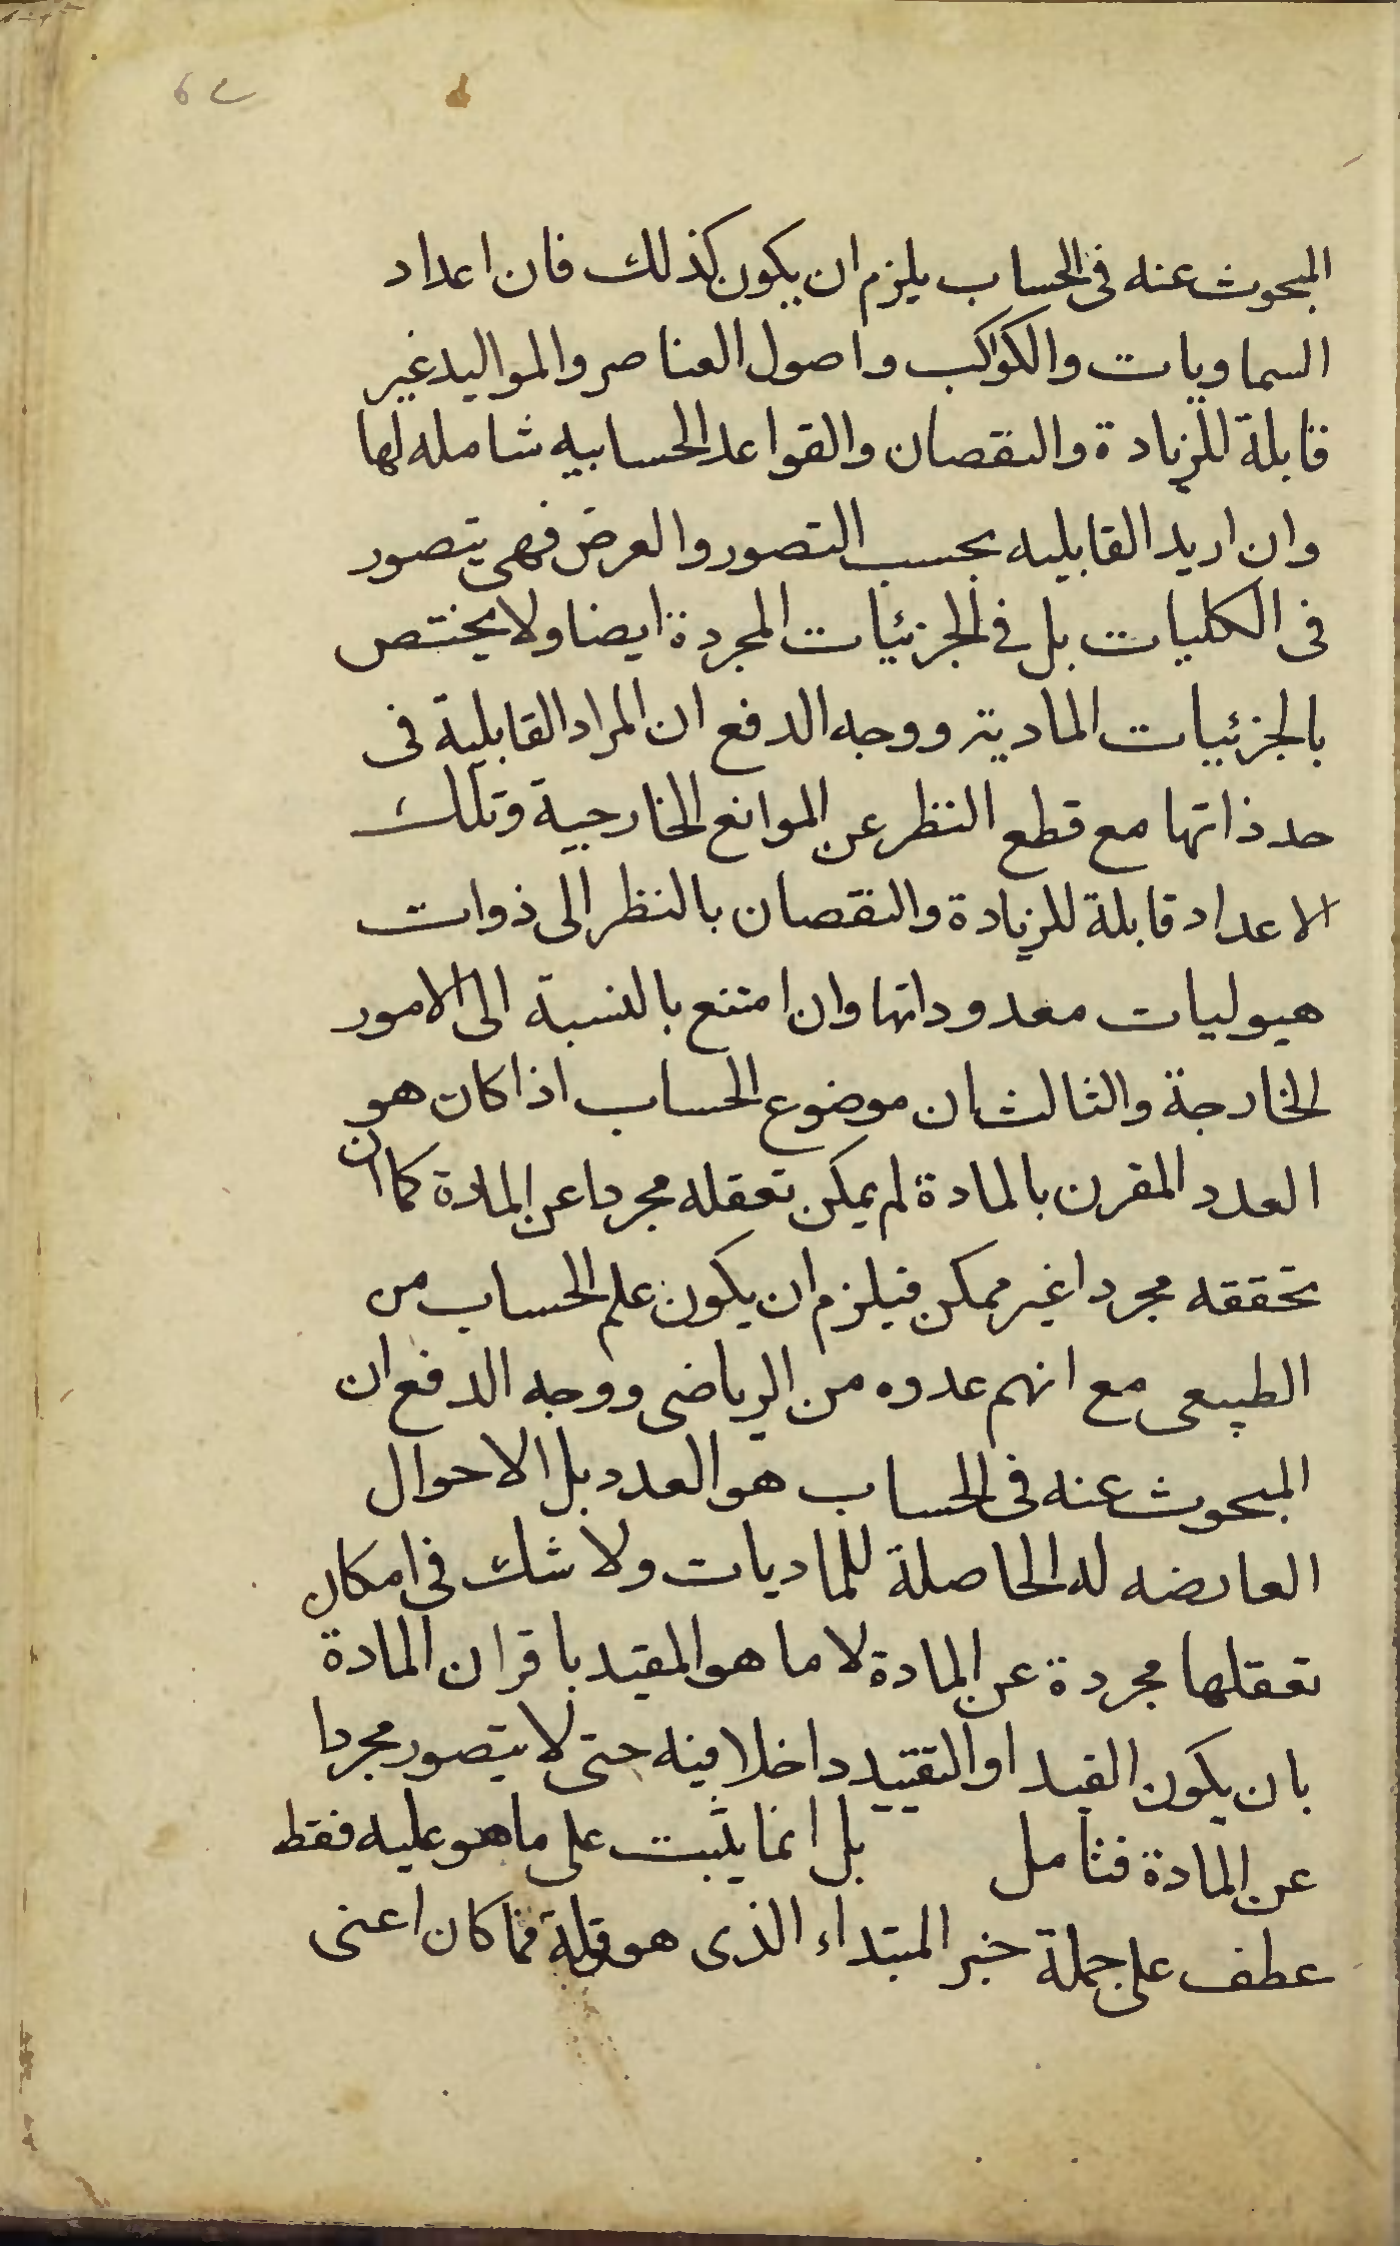 62
المبحوث عنه فى الحساب يلزم ان يكون كذلك فان اعداد
السماويات والكواكب واصول العناصر والمواليد غير
قابلة للزيادة والنقصان والقواعد الحسابيه شامله لها
وان اريد القابليه بحسب التصور والعرض فهى يتصور
فى الكليات بل فى الجزئيات المجردة ايضا ولا يختص
بالجزئيات المادية ووجه الدفع ان المراد القابلية فى
حد ذاتها مع قطع النظر عن الموانع الخارجية وتلك
الاعداد قابلة للزيادة والنقصان بالنظر الى ذوات
هيوليات معدوداتها وان امتنع بالنسبة الى الامور
الخارجة والثالث ان موضوع الحساب اذا كان هو
العدد المقرن بالمادة لم يمكن تعقله مجردا عن المادة كما ان
تحققه مجردا غير ممكن فيلزم ان يكون علم الحساب من
الطبيعى مع انهم عدوه من الرياضى ووجه الدفع ان
المبحوث عنه فى الحساب هو العدد بل الاحوال
العارضه له الحاصلة للماديات ولا شك فى امكان
تعقلها مجردة عن المادة لا ما هو المقيد باقران المادة
بان يكون القيد او التقييد داخلا فيه حتى لا يتصور مجردا
عن المادة فتأمل بل انما يثبت على ما هو عليه فقط
عطف على جملة خبر المبتداء الذى هو قوله فما كان اعنى